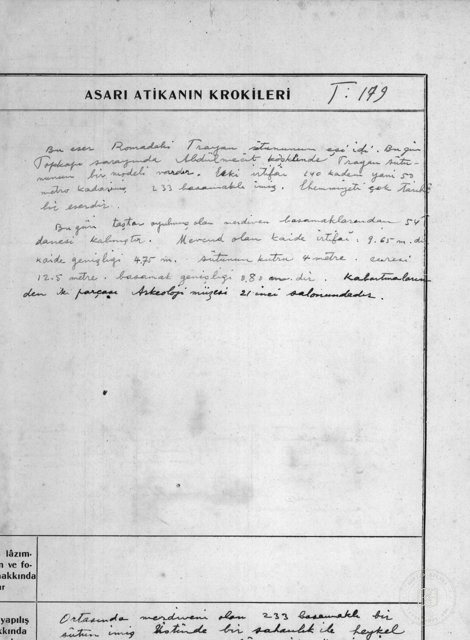 ASARI ATİKANIN KROKİLERİ T: 179
Bu eser Romadaki Trayan sütununun eşi idi. Bugün
Topkapı sarayında Abdülmecit köşkünde Trayan sütu-
nunun bir modeli vardır. Eski irtifaı 140 kadem yani 50
metro kadarmış 233 basamaklı imiş. Ehemmiyeti çok tarihî
bir eserdir.
Bugün taştan oyulmuş olan merdiven basamaklarından 54
danesi kalmıştır. Mevcud olan kaide irtifaı: 9.65 m. dir
kaide genişliği 475 m. sütunun kutru 4 metre.
12.5 metre. basamak genişliği 0.80 dir. Kabartmaların
den iki parçası Arkeoloji müzesi 21 inci salonundadır.
lâzım-
n ve fo-
hakkında
ır
yapılış
kkında
Ortasında merdiveni olan 233 basamaklı bir
sütun imiş Üstünde bir sahanlık ile heykel